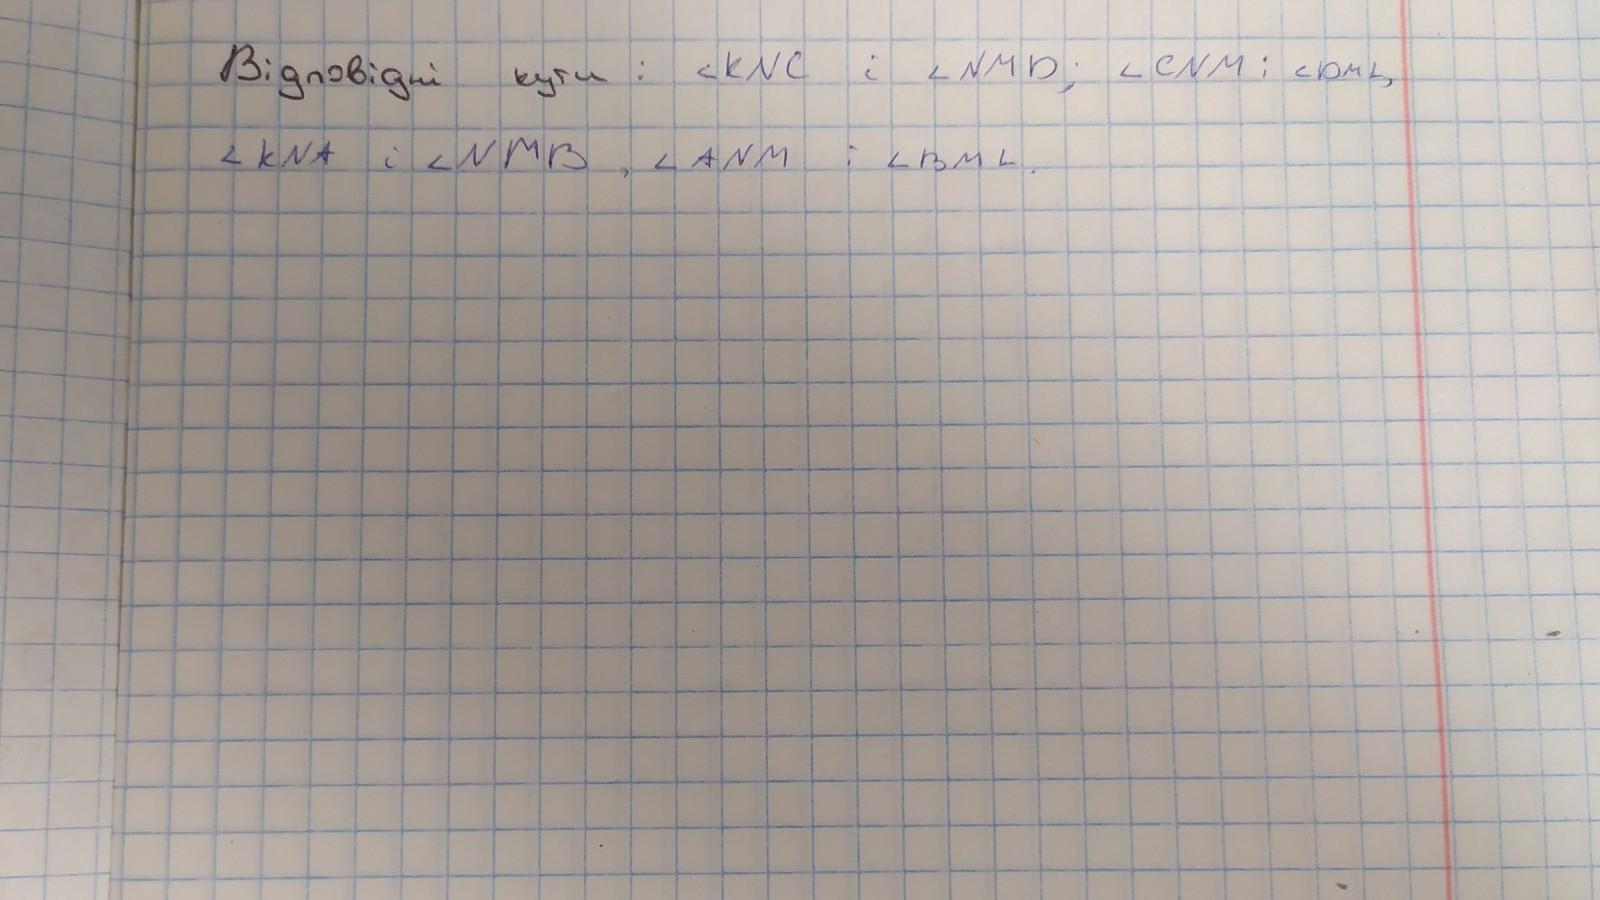 Відповідні кути: ∠KNC і ∠NMD; ∠CNM і ∠DML,
∠KNA і ∠NMB, ∠ANM і ∠BML.